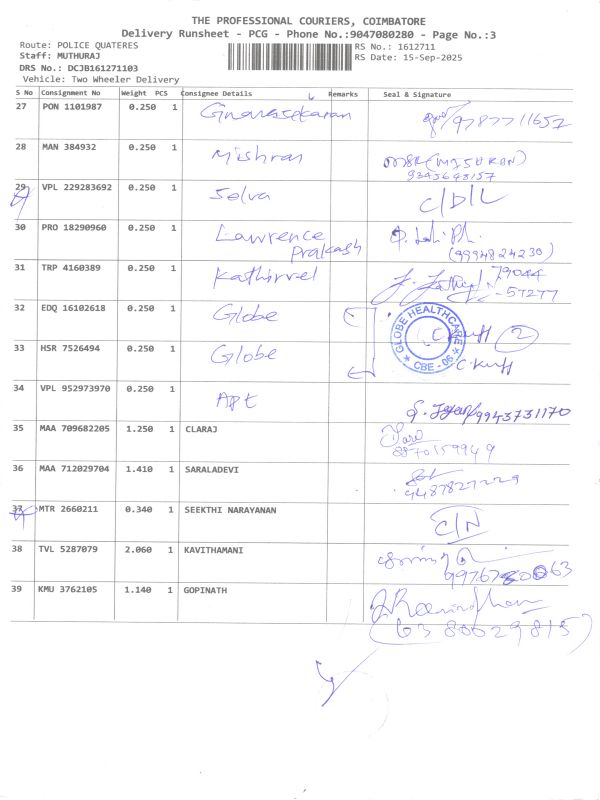 THE PROFESSIONAL COURIERS, COIMBATORE
Delivery Runsheet - PCG - Phone No.:9047080280 - Page No.:3
Route: POLICE QUATERES RS No.: 1612711
Staff: MUTHURAJ RS Date: 15-Sep-2025
DRS No.: DCJB161271103
Vehicle: Two Wheeler Delivery
S No Consignment No Weight PCS Consignee Details Remarks Seal & Signature
27 PON 1101987 0.250 1 Gnanasekaran 9787711657
28 MAN 384932 0.250 1 Mishran MSR(MISHRAN)
9345643157
29 VPL 229283692 0.250 1 Selva C/D/L
30 PRO 18290960 0.250 1 Lawrence
Prakash (9994824230)
31 TRP 4160389 0.250 1 Kathirvel 79044
57277
32 EDQ 16102618 0.250 1 Globe 2
GLOBE HEALTHCARE
CBE - 06
33 HSR 7526494 0.250 1 Globe
34 VPL 952973970 0.250 1 APT 9943731170
35 MAA 709682205 1.250 1 CLARAJ
8870159949
36 MAA 712029704 1.410 1 SARALADEVI
9487827229
37 MTR 2660211 0.340 1 SEEKTHI NARAYANAN C/N
38 TVL 5287079 2.060 1 KAVITHAMANI
39 KMU 3762105 1.140 1 GOPINATH
(6380029815)